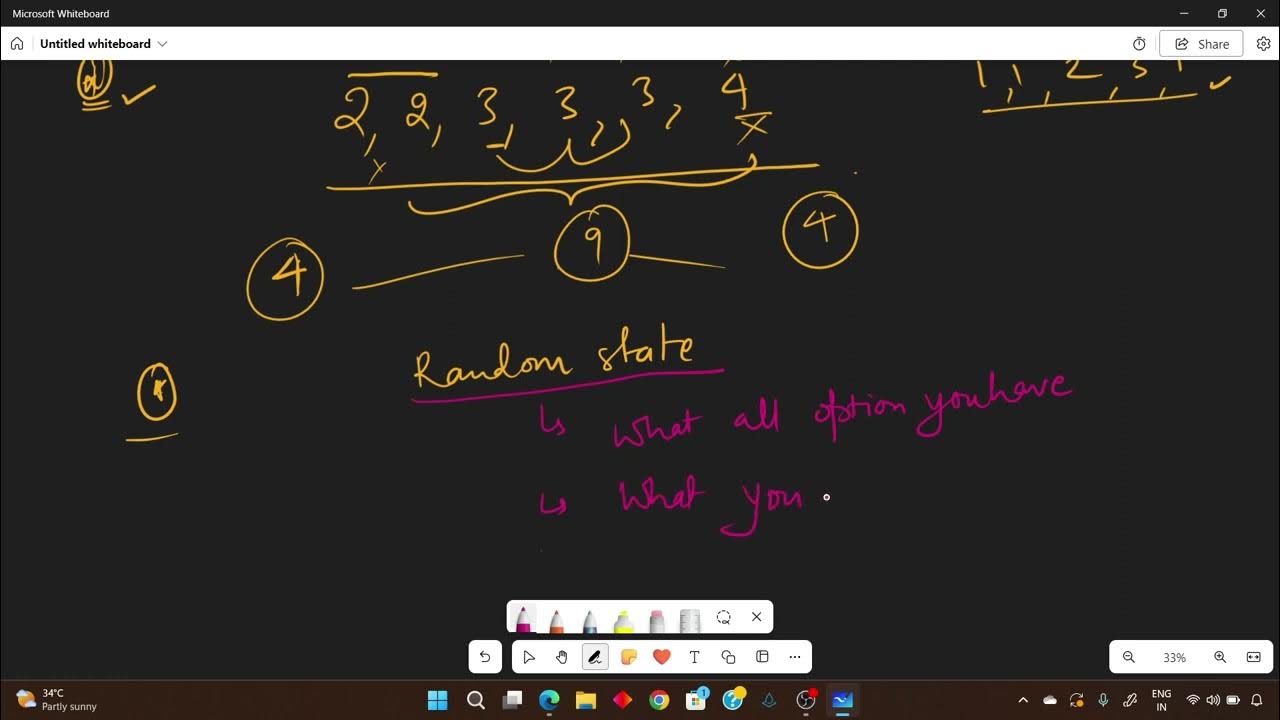 Microsoft Whiteboard
Untitled whiteboard
Share
2, 2, 3, 3, 3, 4
x x
4 9 4
Random state
↳ What all option you have
↳ What you
T
33%
34°C
Partly sunny
1
ENG
IN